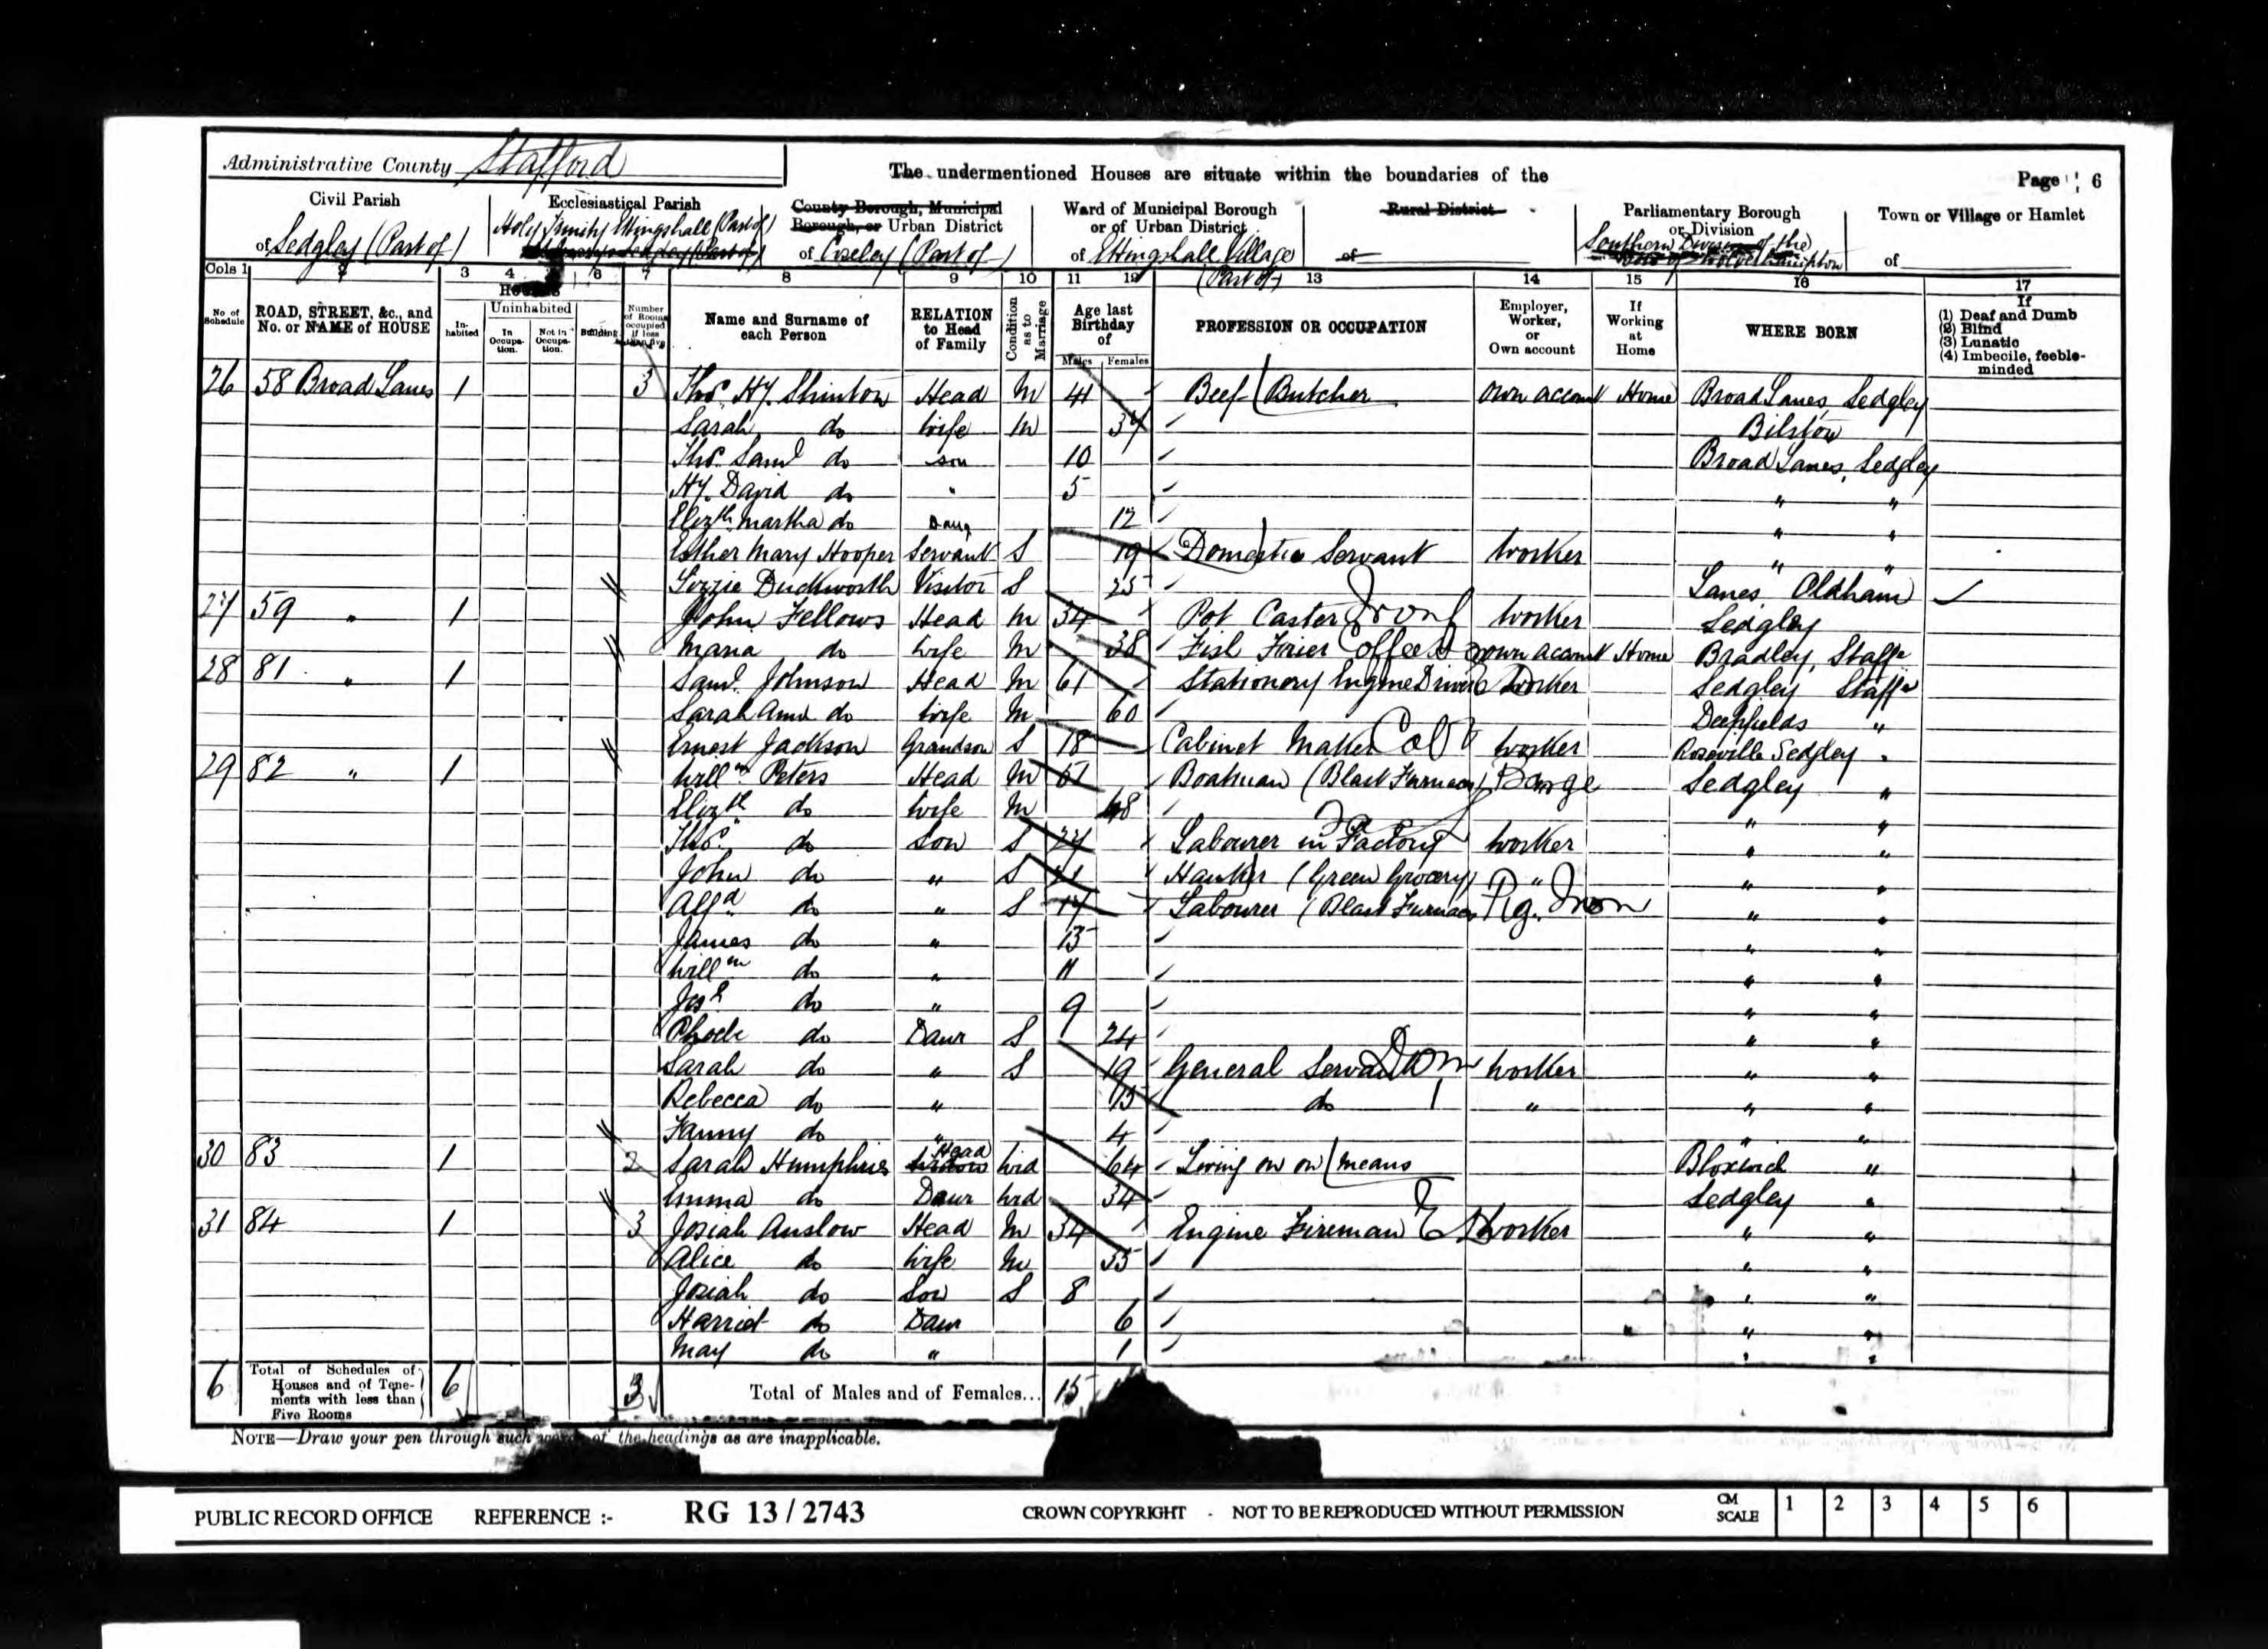 Administrative County Stafford
The undermentioned Houses are situate within the boundaries of the
Page 6
Civil Parish
of Sedgley (Part of)
Ecclesiastical Parish
Holy Trinity Ettingshall (Part of)
County Borough, Municipal
Borough, or Urban District
of Coseley (Part of)
Ward of Municipal Borough
or of Urban District
of Ettingshall Village
(Part of)
Rural District
of
Parliamentary Borough
or Division
Southern Division of the
Town or Village or Hamlet
of
Cols 1 2 3 4 5 6 7 8 9 10 11 12 13 14 15 16 17
No. of Schedule
ROAD, STREET, &c., and No. or NAME of HOUSE
HOUSES
In-habited
Uninhabited
In Occupa-tion.
Not in Occupa-tion.
Building
Number of Rooms occupied if less than five
Name and Surname of each Person
RELATION to Head of Family
Condition as to Marriage
Age last Birthday of
Males Females
PROFESSION OR OCCUPATION
Employer, Worker, or Own account
If Working at Home
WHERE BORN
If
(1) Deaf and Dumb
(2) Blind
(3) Lunatic
(4) Imbecile, feeble-minded
26 58 Broad Lanes 1 3 Thos. Hy. Shinton Head M 41 Beef Butcher own account Home Broad Lanes, Sedgley
Sarah do wife M 37 Bilston
Thos. Saml do son 10 Broad Lanes, Sedgley
Hy. David do " 5 " "
Elizth Martha do Daug 12 " "
Esther Mary Hooper Servant S 19 Domestic Servant Worker " "
Lizzie Duckworth Visitor S 25 Lancs Oldham
27 59 " 1 John Fellows Head M 34 Pot Caster Iron Worker Sedgley
Maria do wife M 38 Fish Frier own account Home Bradley, Staffs
28 81 " 1 Saml. Johnson Head M 61 Stationary Engine Driver Worker Sedgley Staffs
Sarah Ann do wife M 60 Deepfields "
Ernest Jackson Grandson S 18 Cabinet Maker worker Roseville Sedgley "
29 82 " 1 Willm Peters Head M Boatman (Blast Furnaces) Barge Sedgley "
Elizth do wife M 48 " "
Thos. do son S 27 Labourer in Factory worker " "
John do " S 21 Hawker (Green Grocery) " " "
Alfd do " S 17 Labourer (Blast Furnaces Pig Iron " "
James do " 13 " "
Willm do " 11 " "
Josh do " 9 " "
Phoebe do Daur S 24 " "
Sarah do " S 19 General Servant Dom worker " "
Rebecca do " 15 do " " "
Fanny do " 4 " "
30 83 1 2 Sarah Humphries Widow Head Wid 64 Living on own means Bloxwich "
Emma do Daur Wid 34 Sedgley "
31 84 1 3 Josiah Anslow Head M 34 Engine Fireman worker " "
Alice do wife M 35 " "
Josiah do Son S 8 " "
Harriet do Daur 6 " "
May do " 1 " "
6 Total of Schedules of Houses and of Tene-ments with less than Five Rooms 6 3 Total of Males and of Females... 15
NOTE—Draw your pen through such words of the headings as are inapplicable.
PUBLIC RECORD OFFICE REFERENCE :- RG 13 / 2743 CROWN COPYRIGHT - NOT TO BE REPRODUCED WITHOUT PERMISSION CM SCALE 1 2 3 4 5 6